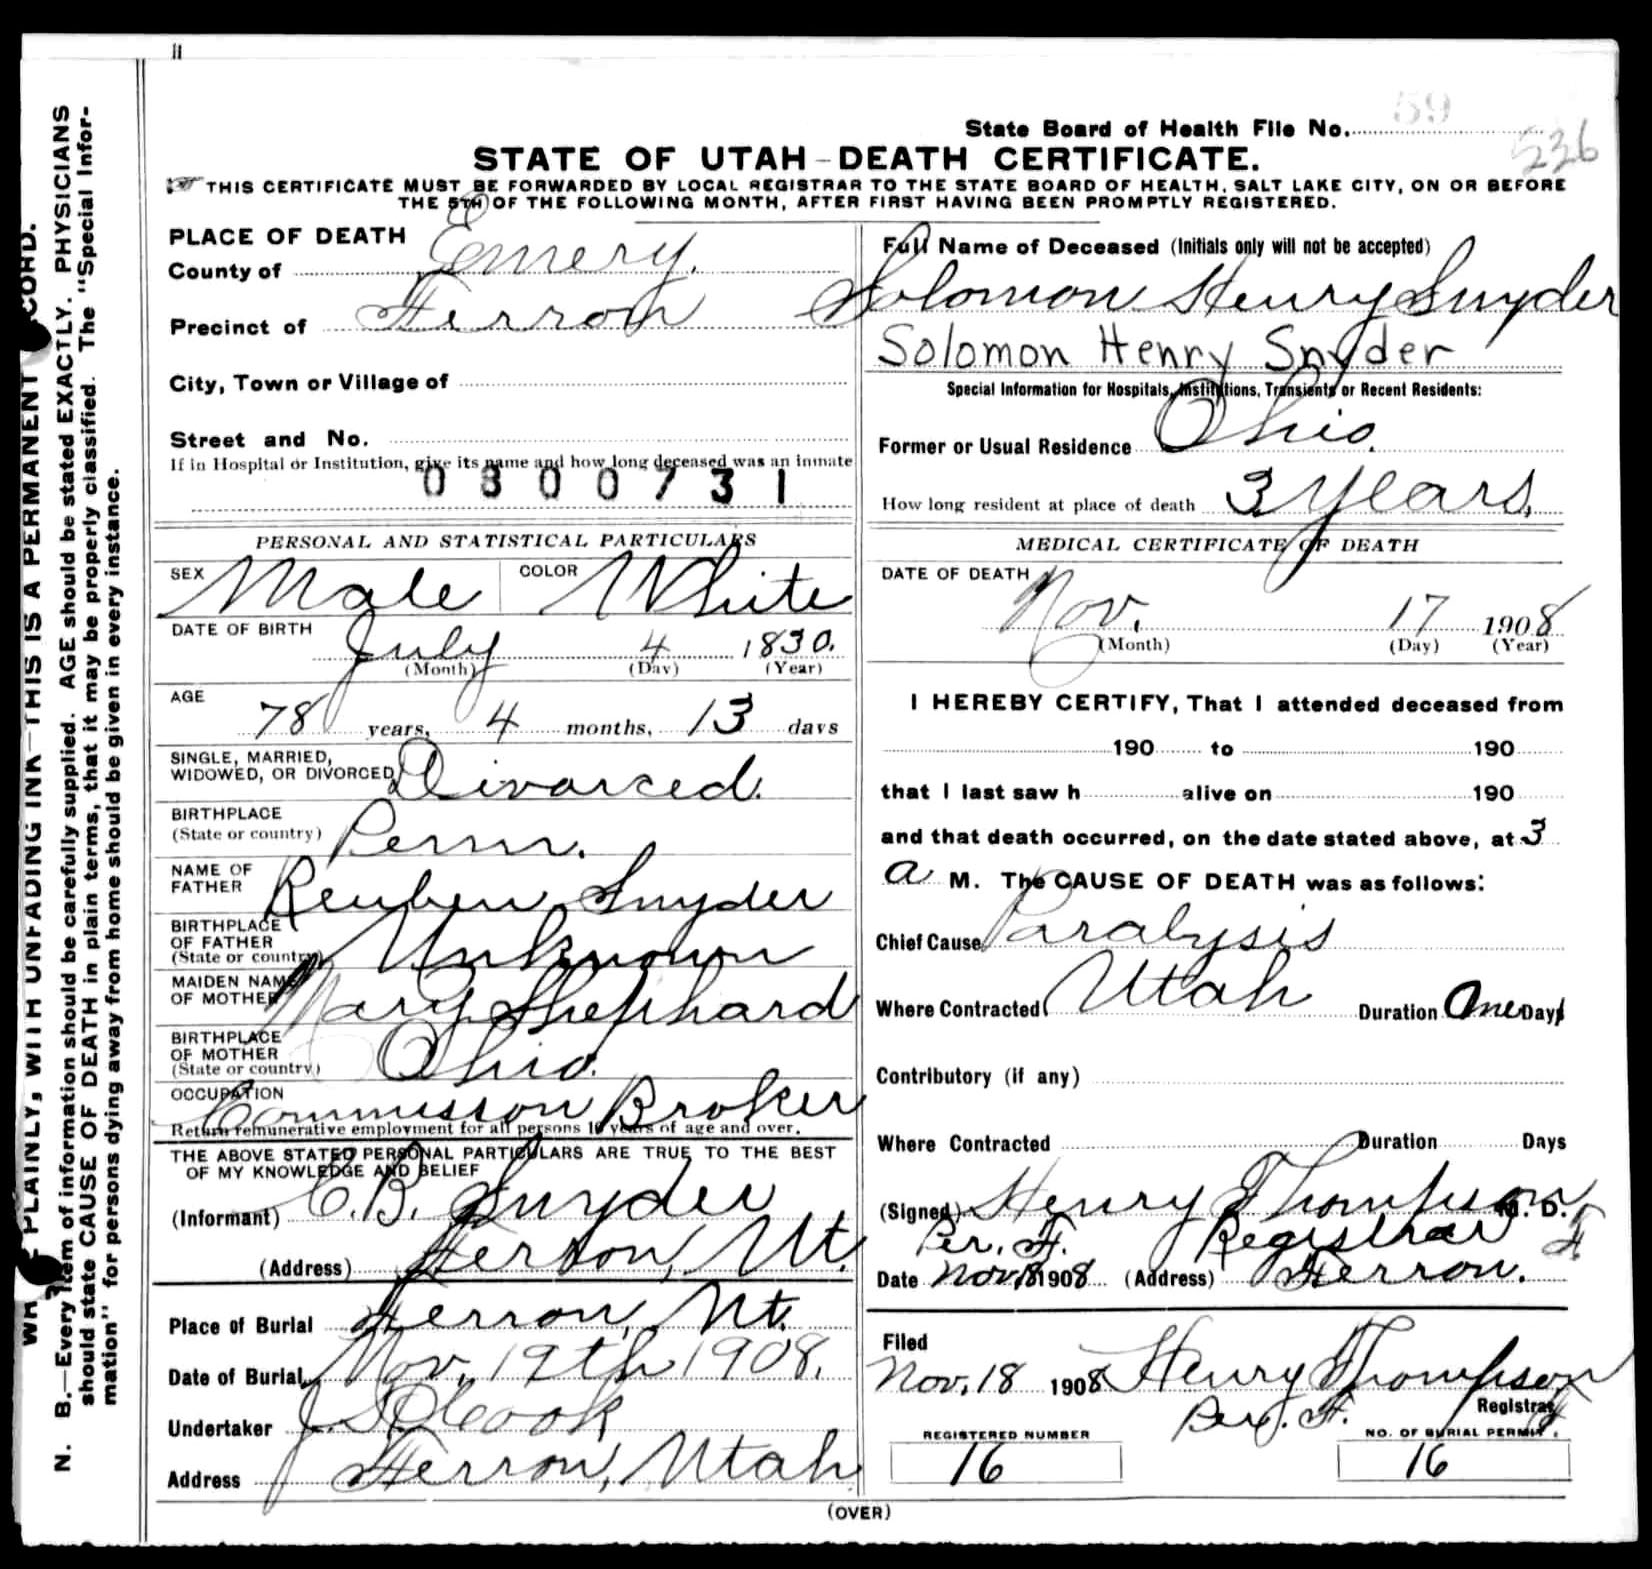 59
State Board of Health File No.
236
STATE OF UTAH-DEATH CERTIFICATE.
THIS CERTIFICATE MUST BE FORWARDED BY LOCAL REGISTRAR TO THE STATE BOARD OF HEALTH, SALT LAKE CITY, ON OR BEFORE
THE 5TH OF THE FOLLOWING MONTH, AFTER FIRST HAVING BEEN PROMPTLY REGISTERED.
PLACE OF DEATH
County of Emery.
Precinct of Ferron
City, Town or Village of
Street and No.
If in Hospital or Institution, give its name and how long deceased was an inmate
0300731
Full Name of Deceased (Initials only will not be accepted)
Solomon Henry Snyder
Solomon Henry Snyder
Special Information for Hospitals, Institutions, Transients or Recent Residents:
Former or Usual Residence Ohio.
How long resident at place of death 3 years.
PERSONAL AND STATISTICAL PARTICULARS
SEX Male COLOR White
DATE OF BIRTH July 4 1830.
(Month) (Day) (Year)
AGE
78 years, 4 months, 13 days
SINGLE, MARRIED,
WIDOWED, OR DIVORCED Divorced.
BIRTHPLACE
(State or country) Penn.
NAME OF
FATHER Reuben Snyder
BIRTHPLACE
OF FATHER
(State or country) Unknown
MAIDEN NAME
OF MOTHER Mary Shephard
BIRTHPLACE
OF MOTHER
(State or country) Ohio.
OCCUPATION
Commisson Broker
Return remunerative employment for all persons 10 years of age and over.
THE ABOVE STATED PERSONAL PARTICULARS ARE TRUE TO THE BEST
OF MY KNOWLEDGE AND BELIEF
(Informant) C.B. Snyder
(Address) Ferron, Ut.
Place of Burial Ferron, Ut.
Date of Burial Nov. 19th 1908.
Undertaker J. Cook
Address Ferron, Utah
MEDICAL CERTIFICATE OF DEATH
DATE OF DEATH
Nov. 17 1908
(Month) (Day) (Year)
I HEREBY CERTIFY, That I attended deceased from
190 to 190
that I last saw h alive on 190
and that death occurred, on the date stated above, at 3
a M. The CAUSE OF DEATH was as follows:
Chief Cause Paralysis
Where Contracted Utah Duration One Days
Contributory (if any)
Where Contracted Duration Days
(Signed) Henry Thompson M. D.
Per. F. Registrar F
Date Nov 18 1908 (Address) Ferron.
Filed
Nov. 18 1908 Henry Thompson
Per. F. Registrar
REGISTERED NUMBER NO. OF BURIAL PERMIT
16 16
(OVER)
WRITE PLAINLY, WITH UNFADING INK—THIS IS A PERMANENT RECORD.
N. B.—Every item of information should be carefully supplied. AGE should be stated EXACTLY. PHYSICIANS
should state CAUSE OF DEATH in plain terms, that it may be properly classified. The "Special Infor-
mation" for persons dying away from home should be given in every instance.